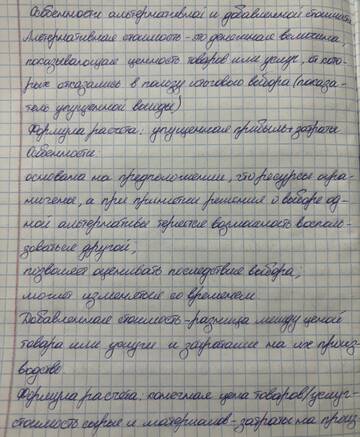 Особенности альтернативной и добавленной стоимости
Альтернативная стоимость - это денежная величина,
показывающая ценность товаров или услуг, от кото-
рых отказались в пользу итогового выбора (показа-
тель упущенной выгоды)
Формула расчёта: упущенная прибыль + затраты
Особенности:
основана на предположении, что ресурсы огра-
ничены, а при принятии решения о выборе од-
ной альтернативы теряется возможность восполь-
зоваться другой;
позволяет оценивать последствия выбора;
может изменяться со временем
Добавленная стоимость - разница между ценой
товара или услуги и затратами на их произ-
водство
Формула расчёта: конечная цена товаров/услуг -
стоимость сырья и материалов - затраты на произ